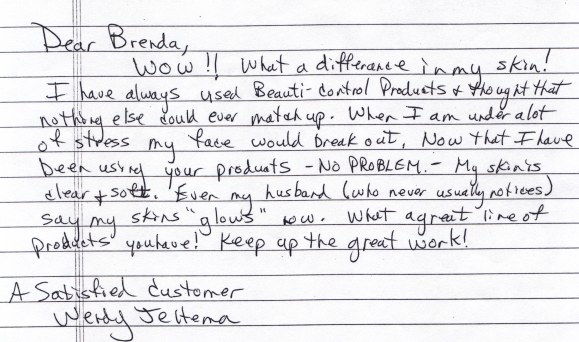 Dear Brenda,
WOW!! What a difference in my skin!
I have always used Beauti-control Products & thought that
nothing else could ever match up. When I am under alot
of stress my face would break out, Now that I have
been using your products - NO PROBLEM. - My skin is
clear & soft. Even my husband (who never usually notices)
say my skins "glows" now. What a great line of
Products you have! Keep up the great work!
A Satisfied Customer
Wendy Jeltema